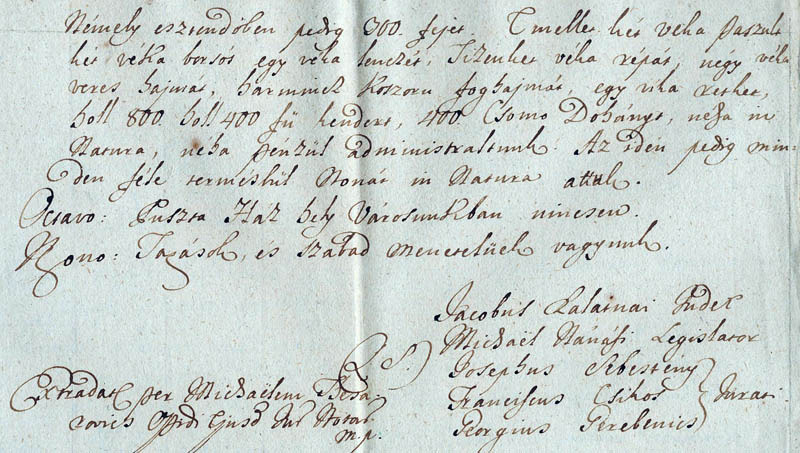 Némely esztendőben pedig 300. fejet. Emellet hét véka Paszult
hét véka borsót egy véka lencsét, Tizenhet véka répát, négy véka
veres hajmát, harmincz koszoru foghajmát, egy véka retket,
holl 800. holl 400 fü kendert, 400. Csomo Dohányt, néha in
Natura, néha pénzül administraltunk. Az idén pedig min=
den féle termésbül Nonát in Natura attuk.
Octavo: Puszta Ház hely Városunkban nincsen.
Nono: Taxások, és szabad menetelüek vagyunk.
Jacobus Kalatnai Judex
Michaël Nánási Legislator
L. S.
Josephus Sebestény
Franciscus Csikos Jurati
Georgius Terebenics
Extradat per Michaëlem
rovics Oppidi Ejusd Jur Notar
m.p.